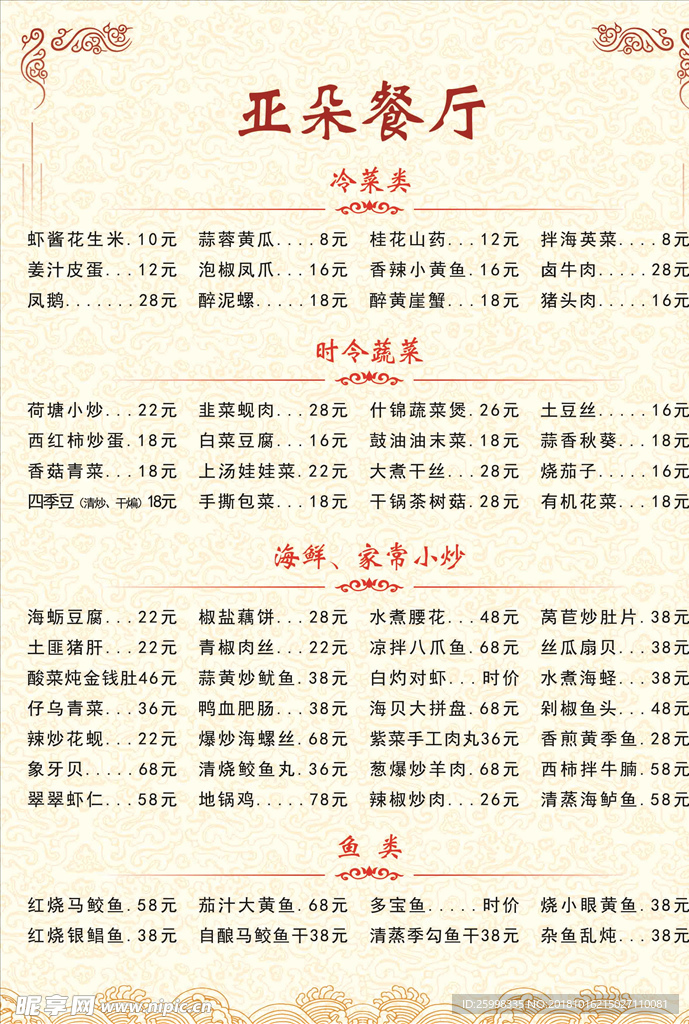 亚朵餐厅
冷菜类
虾酱花生米.10元 蒜蓉黄瓜....8元 桂花山药...12元 拌海英菜....8元
姜汁皮蛋...12元 泡椒凤爪...16元 香辣小黄鱼.16元 卤牛肉.....28元
凤鹅.......28元 醉泥螺.....18元 醉黄崖蟹...18元 猪头肉.....16元
时令蔬菜
荷塘小炒...22元 韭菜蚬肉...28元 什锦蔬菜煲.26元 土豆丝.....16元
西红柿炒蛋.18元 白菜豆腐...16元 鼓油油末菜.18元 蒜香秋葵...18元
香菇青菜...18元 上汤娃娃菜.22元 大煮干丝...28元 烧茄子.....16元
四季豆（清炒、干煸）18元 手撕包菜...18元 干锅茶树菇.28元 有机花菜...18元
海鲜、家常小炒
海蛎豆腐...22元 椒盐藕饼...28元 水煮腰花...48元 莴苣炒肚片.38元
土匪猪肝...22元 青椒肉丝...22元 凉拌八爪鱼.68元 丝瓜扇贝...38元
酸菜炖金钱肚46元 蒜黄炒鱿鱼.38元 白灼对虾...时价 水煮海蛏...38元
仔乌青菜...36元 鸭血肥肠...38元 海贝大拼盘.68元 剁椒鱼头...48元
辣炒花蚬...22元 爆炒海螺丝.68元 紫菜手工肉丸36元 香煎黄季鱼.28元
象牙贝.....68元 清烧鲛鱼丸.36元 葱爆炒羊肉.68元 西柿拌牛腩.58元
翠翠虾仁...58元 地锅鸡.....78元 辣椒炒肉...26元 清蒸海鲈鱼.58元
鱼 类
红烧马鲛鱼.58元 茄汁大黄鱼.68元 多宝鱼.....时价 烧小眼黄鱼.38元
红烧银鲳鱼.38元 自酿马鲛鱼干38元 清蒸季勾鱼干38元 杂鱼乱炖...38元
昵享网 www.nipic.cn
ID:25998335 NO:20181016215027110081